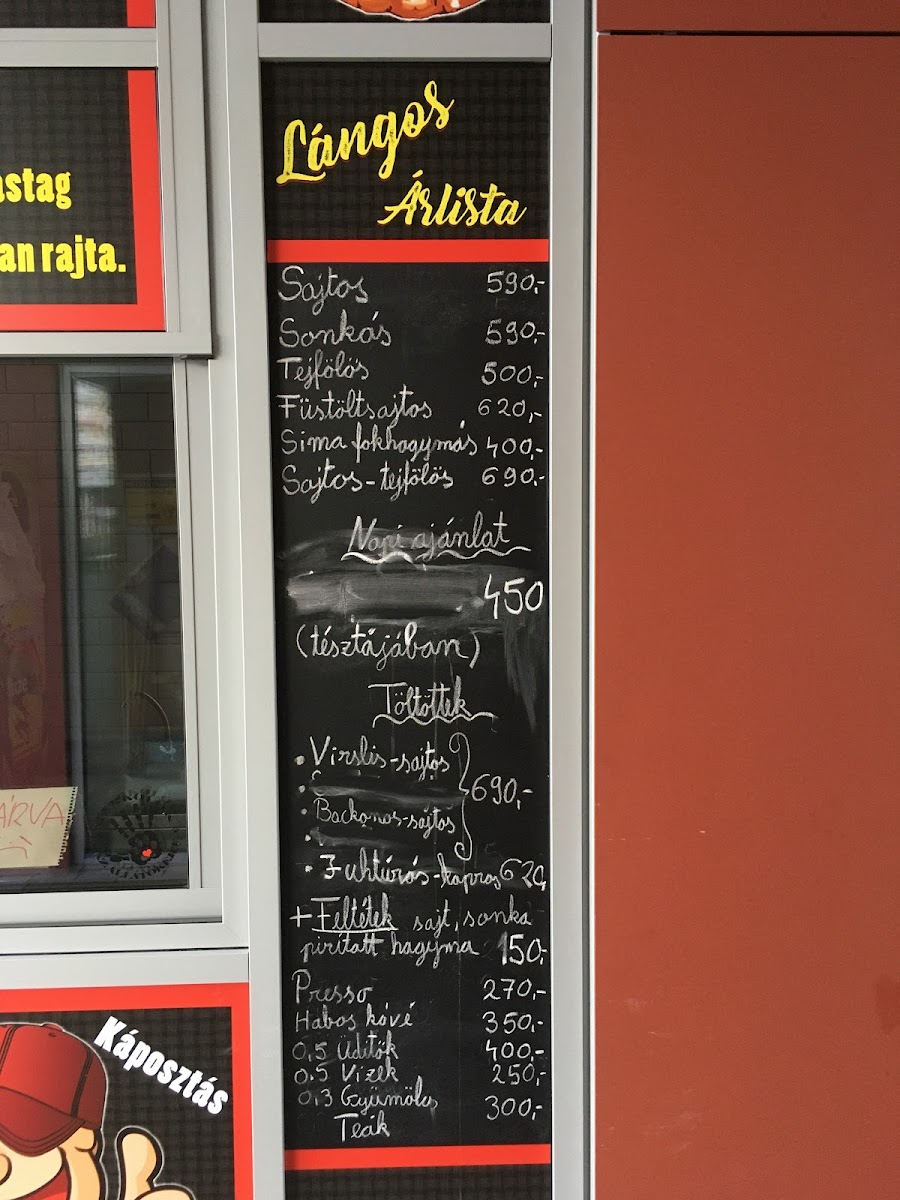 astag
an rajta.
Lángos
Árlista
Sajtos 590,-
Sonkás 590,-
Tejfölös 500,-
Füstöltsajtos 620,-
Sima fokhagymás 400,-
Sajtos-tejfölös 690,-
Napi ajánlat
450
(tésztájában)
Töltöttek
• Virslis-sajtos
690,-
• Backonos-sajtos
• Juhtúrós-kapros 620,
+ Feltétek sajt, sonka
pirított hagyma 150,-
Presso 270,-
Habos kávé 350,-
0,5 Üdítők 400,-
0,5 Vizek 250,-
0,3 Gyümölcs 300,-
Teák
ÁRVA
Káposztás